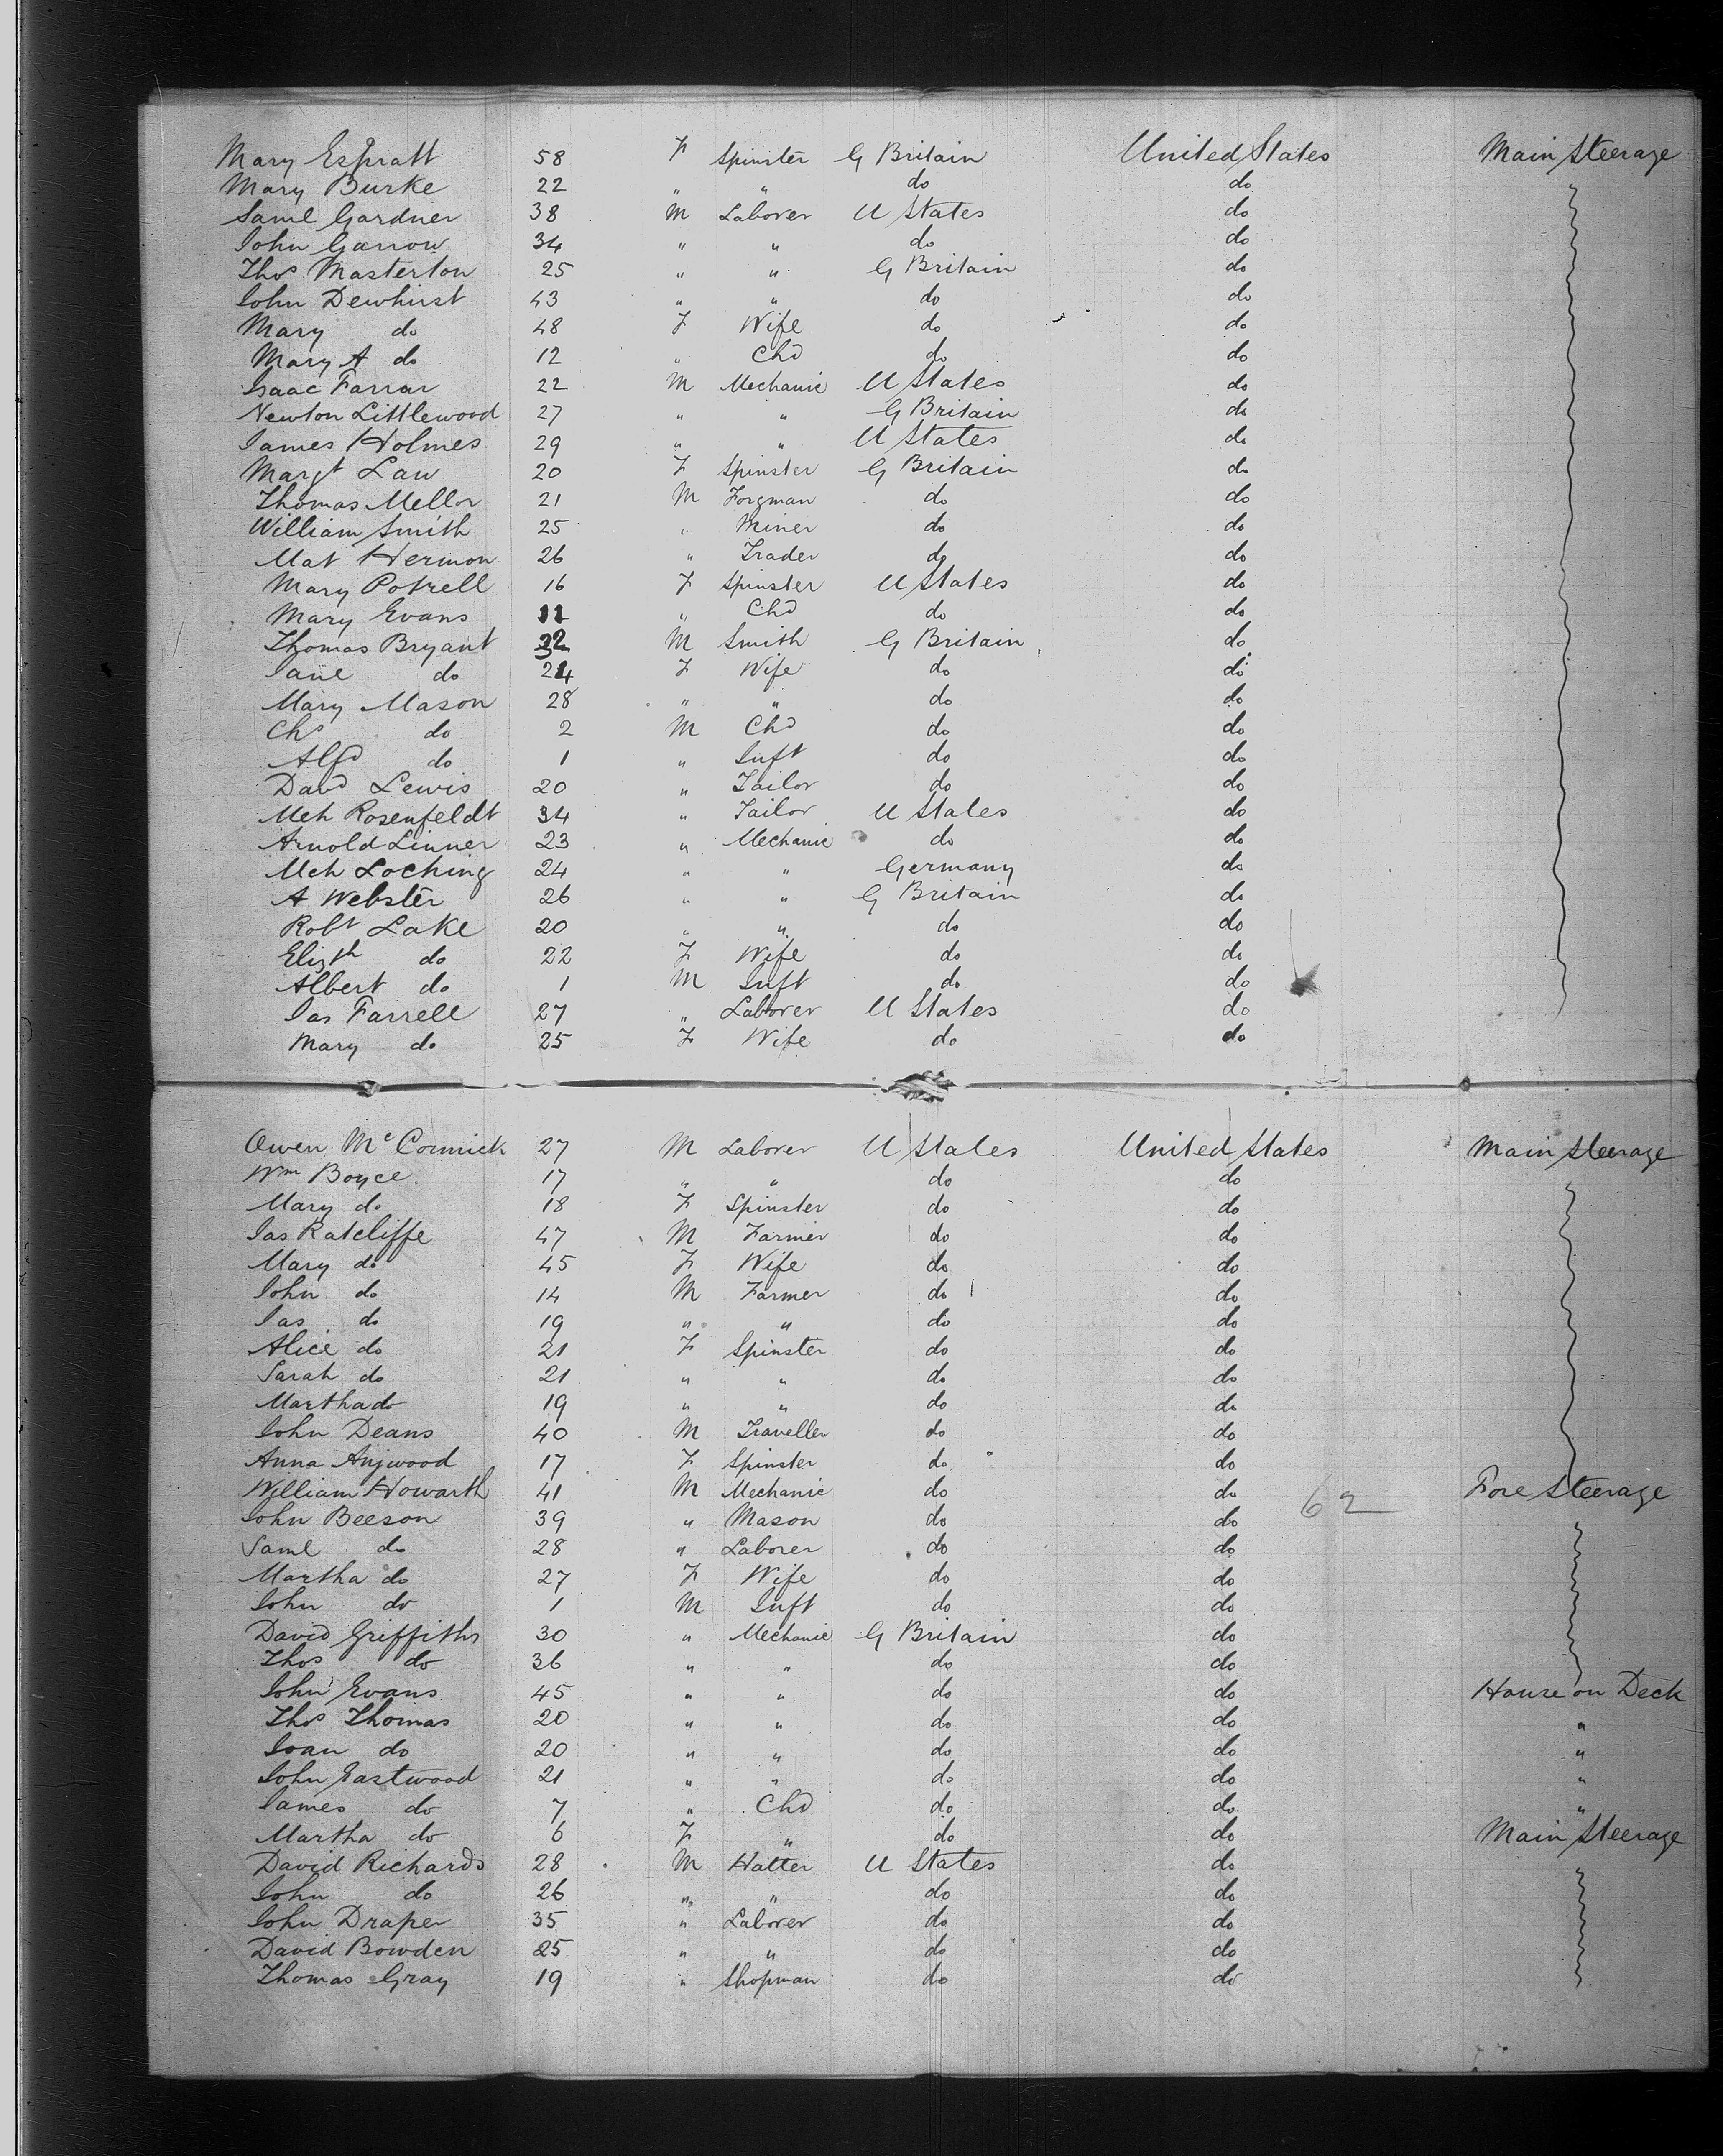 Mary Espratt 58 F Spinster G Britain United States Main Steerage
Mary Burke 22 " " do do
Saml Gardner 38 M Laborer U States do
John Garrow 34 " " do do
Thos Masterton 25 " " G Britain do
John Dewhirst 43 " " do do
Mary do 48 F Wife do do
Mary A do 12 " Chd do do
Isaac Farrar 22 M Mechanic U States do
Newton Littlewood 27 " " G Britain do
James Holmes 29 " " U States do
Margt Law 20 F Spinster G Britain do
Thomas Mellor 21 M Forgman do do
William Smith 25 " Miner do do
Mat Hermon 26 " Trader do do
Mary Potrell 16 F Spinster U States do
Mary Evans 11 " Chd do do
Thomas Bryant 32 M Smith G Britain do
Jane do 24 F Wife do do
Mary Mason 28 " " do do
Chs do 2 M Chd do do
Alfd do 1 " Inft do do
Davd Lewis 20 " Tailor do do
Meh Rosenfeldt 34 " Tailor U States do
Arnold Linner 23 " Mechanic do do
Meh Loching 24 " " Germany do
A Webster 26 " " G Britain do
Robt Lake 20 " " do do
Elizth do 22 F Wife do do
Albert do 1 M Inft do do
Jas Farrell 27 " Laborer U States do
Mary do 25 F Wife do do
Owen McCormick 27 M Laborer U States United States Main Steerage
Wm Boyce 17 " " do do
Mary do 18 F Spinster do do
Jas Ratcliffe 47 M Farmer do do
Mary do 45 F Wife do do
John do 14 M Farmer do do
Jas do 19 " " do do
Alice do 21 F Spinster do do
Sarah do 21 " " do do
Martha do 19 " " do do
John Deans 40 M Traveller do do
Anna 17 F Spinster do do
William Howarth 41 M Mechanic do do 62 Fore Steerage
John Beeson 39 " Mason do do
Saml do 28 " Laborer do do
Martha do 27 F Wife do do
John do 1 M Inft do do
David Griffiths 30 " Mechanic G Britain do
Thos do 36 " " do do
John Evans 45 " " do do House on Deck
Thos Thomas 20 " " do do "
Joan do 20 " " do do "
John Eastwood 21 " " do do "
James do 7 " Chd do do "
Martha do 6 F " do do Main Steerage
David Richards 28 M Hatter U States do
John do 26 " " do do
John Draper 35 " Laborer do do
David Bowden 25 " " do do
Thomas Gray 19 " Shopman do do